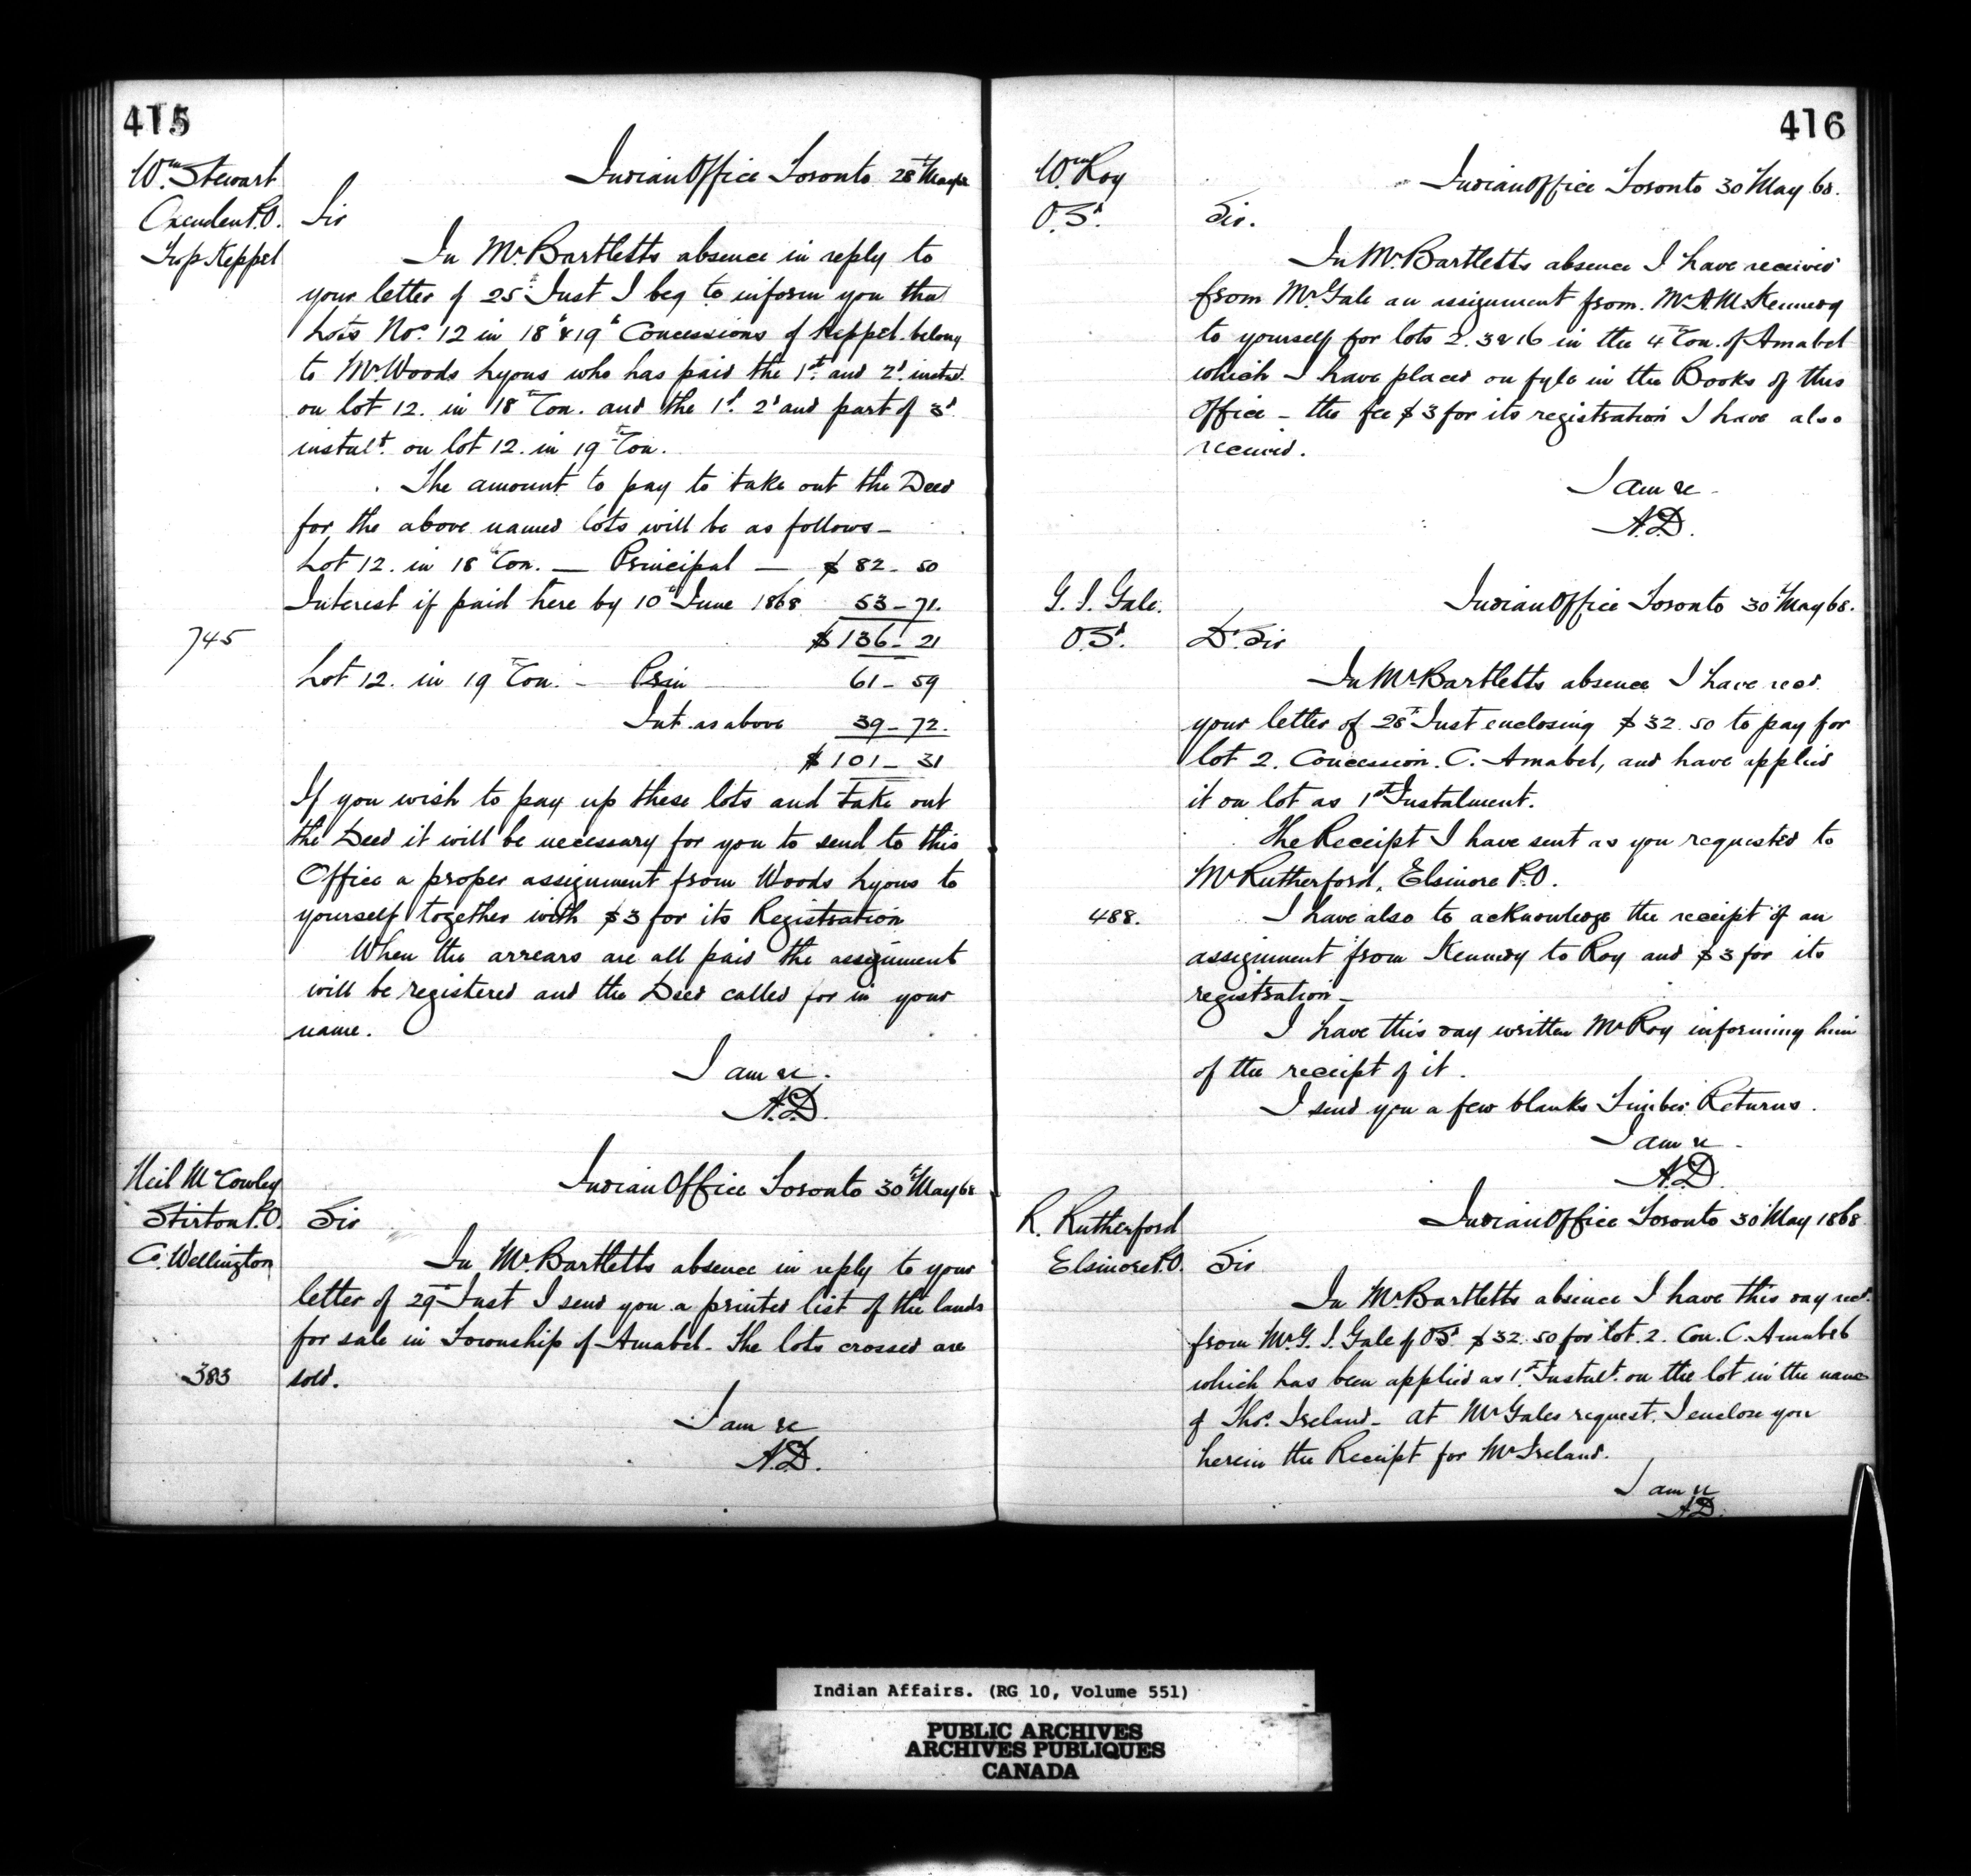 415
Wm Stewart
Oxenden P.O.
Twp Keppel
Indian Office Toronto 28th May 68
Sir
In Mr. Bartletts absence in reply to
your letter of 25th Inst I beg to inform you that
Lots No. 12 in 18th & 19th Concessions of Keppel belong
to Mr Woods Lyons who has paid the 1st and 2d instal.
on lot 12. in 18th Con. and the 1st. 2d and part of 3d
instalt. on lot 12. in 19th Con.
The amount to pay to take out the Deed
for the above named lots will be as follows -
Lot 12. in 18th Con. — Principal — $ 82 - 50
Interest if paid here by 10th June 1868 53 - 71.
745
$ 136 - 21
Lot 12. in 19th Con. - Prin 61 - 59
Int. as above 39 - 72.
$ 101 - 31
If you wish to pay up these lots and take out
the Deed it will be necessary for you to send to this
Office a proper assignment from Woods Lyons to
yourself together with $3 for its Registration
When the arrears are all paid the assignment
will be registered and the Deed called for in your
name.
I am &c.
A.D.
Neil McCowley
Stirton P.O.
C. Wellington
Indian Office Toronto 30th May 68
Sir
In Mr. Bartletts absence in reply to your
letter of 29th Inst I send you a printed list of the lands
for sale in Township of Amabel. The lots crossed are
383
sold.
I am &c
A.D.
416
Wm Roy
O. Sd.
Indian Office Toronto 30th May 68.
Sir.
In Mr. Bartletts absence I have received
from Mr Gale an assignment from Mr A.M. Kennedy
to yourself for lots 2. 3 & 16 in the 4th Con. of Amabel
which I have placed on fyle in the Books of this
Office - the fee $3 for its registration I have also
received.
I am &c -
A.D.
G. J. Gale.
O Sd.
Indian Office Toronto 30th May 68.
Dr Sir
In Mr Bartletts absence I have recd.
your letter of 28th Inst enclosing $32.50 to pay for
lot 2. Concession. C. Amabel, and have applied
it on lot as 1st Instalment.
The Receipt I have sent as you requested to
Mr Rutherford, Elsinore P.O.
488.
I have also to acknowledge the receipt of an
assignment from Kennedy to Roy and $3 for its
registration -
I have this day written Mr Roy informing him
of the receipt of it.
I send you a few blanks Timber Returns.
I am &c -
A.D.
R. Rutherford
Elsinore P.O.
Indian Office Toronto 30th May 1868
Sir
In Mr Bartletts absence I have this day recd.
from Mr G. J. Gale of O Sd $32.50 for lot. 2. Con. C. Amabel
which has been applied as 1st Instalt. on the lot in the name
of Thos. Ireland - at Mr Gales request. I enclose you
herein the Receipt for Mr Ireland.
I am &c
A.D.
Indian Affairs. (RG 10, Volume 551)
PUBLIC ARCHIVES
ARCHIVES PUBLIQUES
CANADA